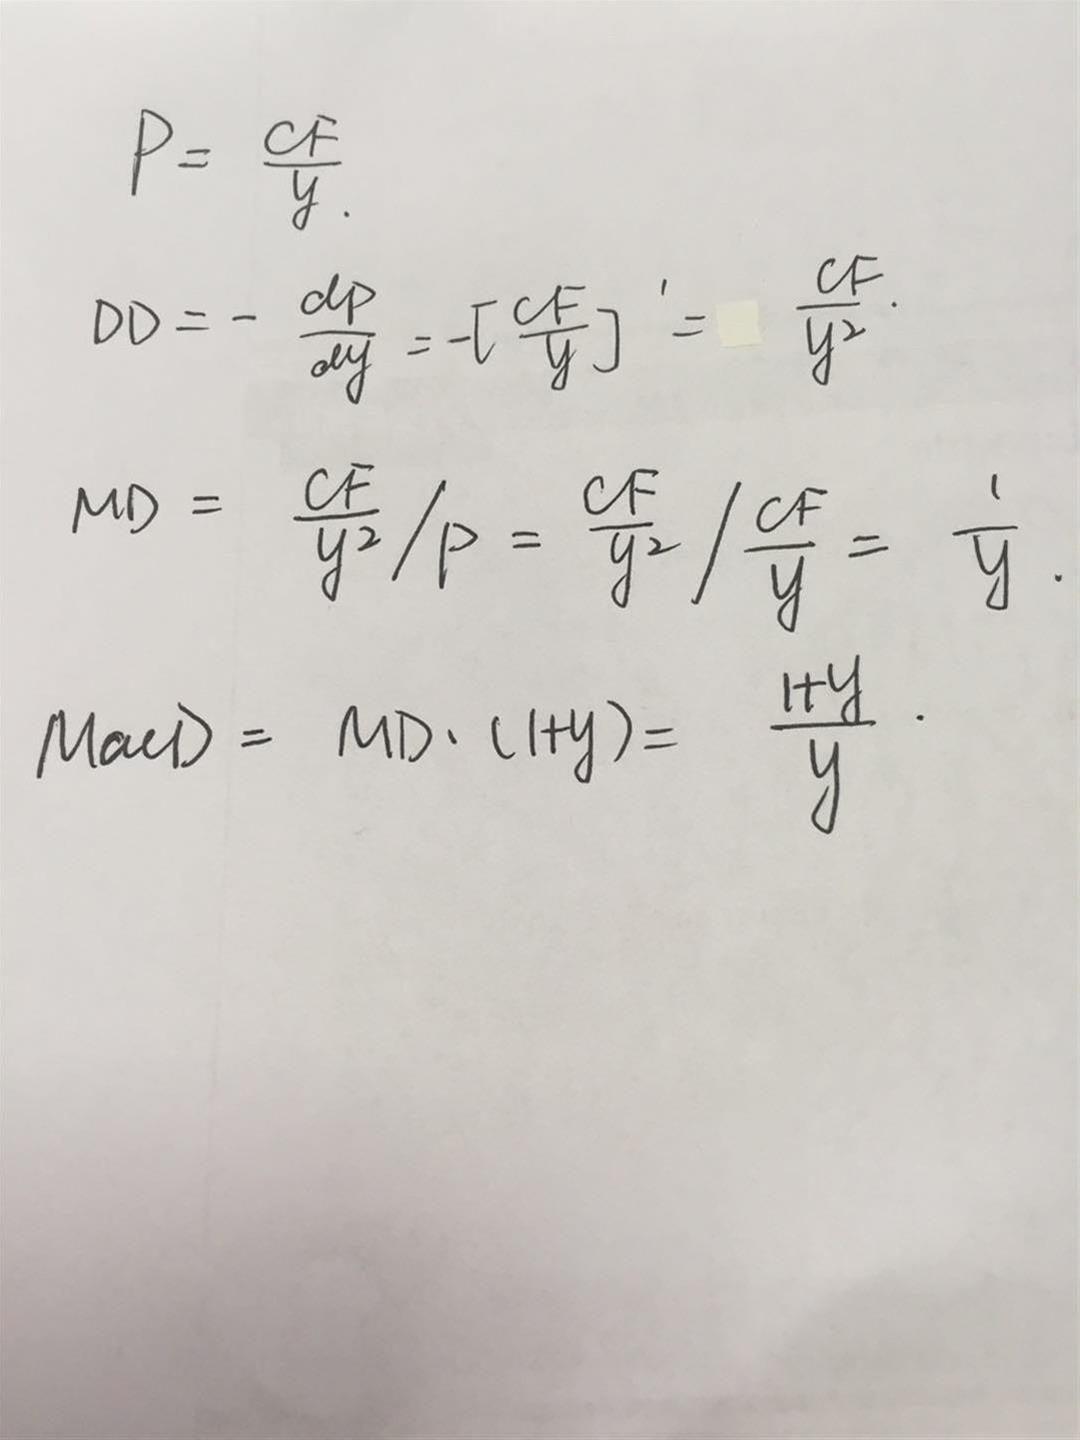 P = CF/y.
DD = - dp/dy = -[CF/y]' = CF/y².
MD = CF/y² / p = CF/y² / CF/y = 1/y.
MacD = MD·(1+y) = 1+y/y.